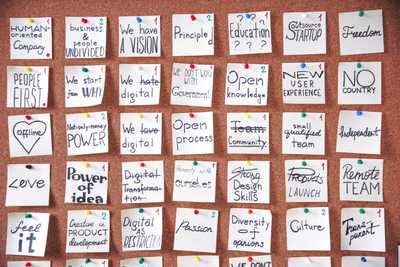 HUMAN-
oriented
Company
1
business
& people
UNDIVIDED
2
We have
A VISION
1
Principle
2
Education
? ? ?
2
Outsource
STARTUP
Freedom
PEOPLE
FIRST
1
We start
from WHY
We hate
digital
We DON'T
with
Government
Open
knowledge
2
NEW
USER
EXPERIENCE
1
NO
COUNTRY
1
Offline
Not-only-money
POWER
We love
digital
1
Open
process
1
Team
Community
small
qualified
team
Independent
1
Love
Power
of idea
1
Digital
Transformation
Honesty with
ourselves
Strong
Design
Skills
Products
LAUNCH
Remote
TEAM
1
feel
it
Creative in
PRODUCT
development
2
Digital
AS
RESTRICTED
Passion
2
Diversity
of
opinions
2
Culture
2
Transparent
1
WE DON'T